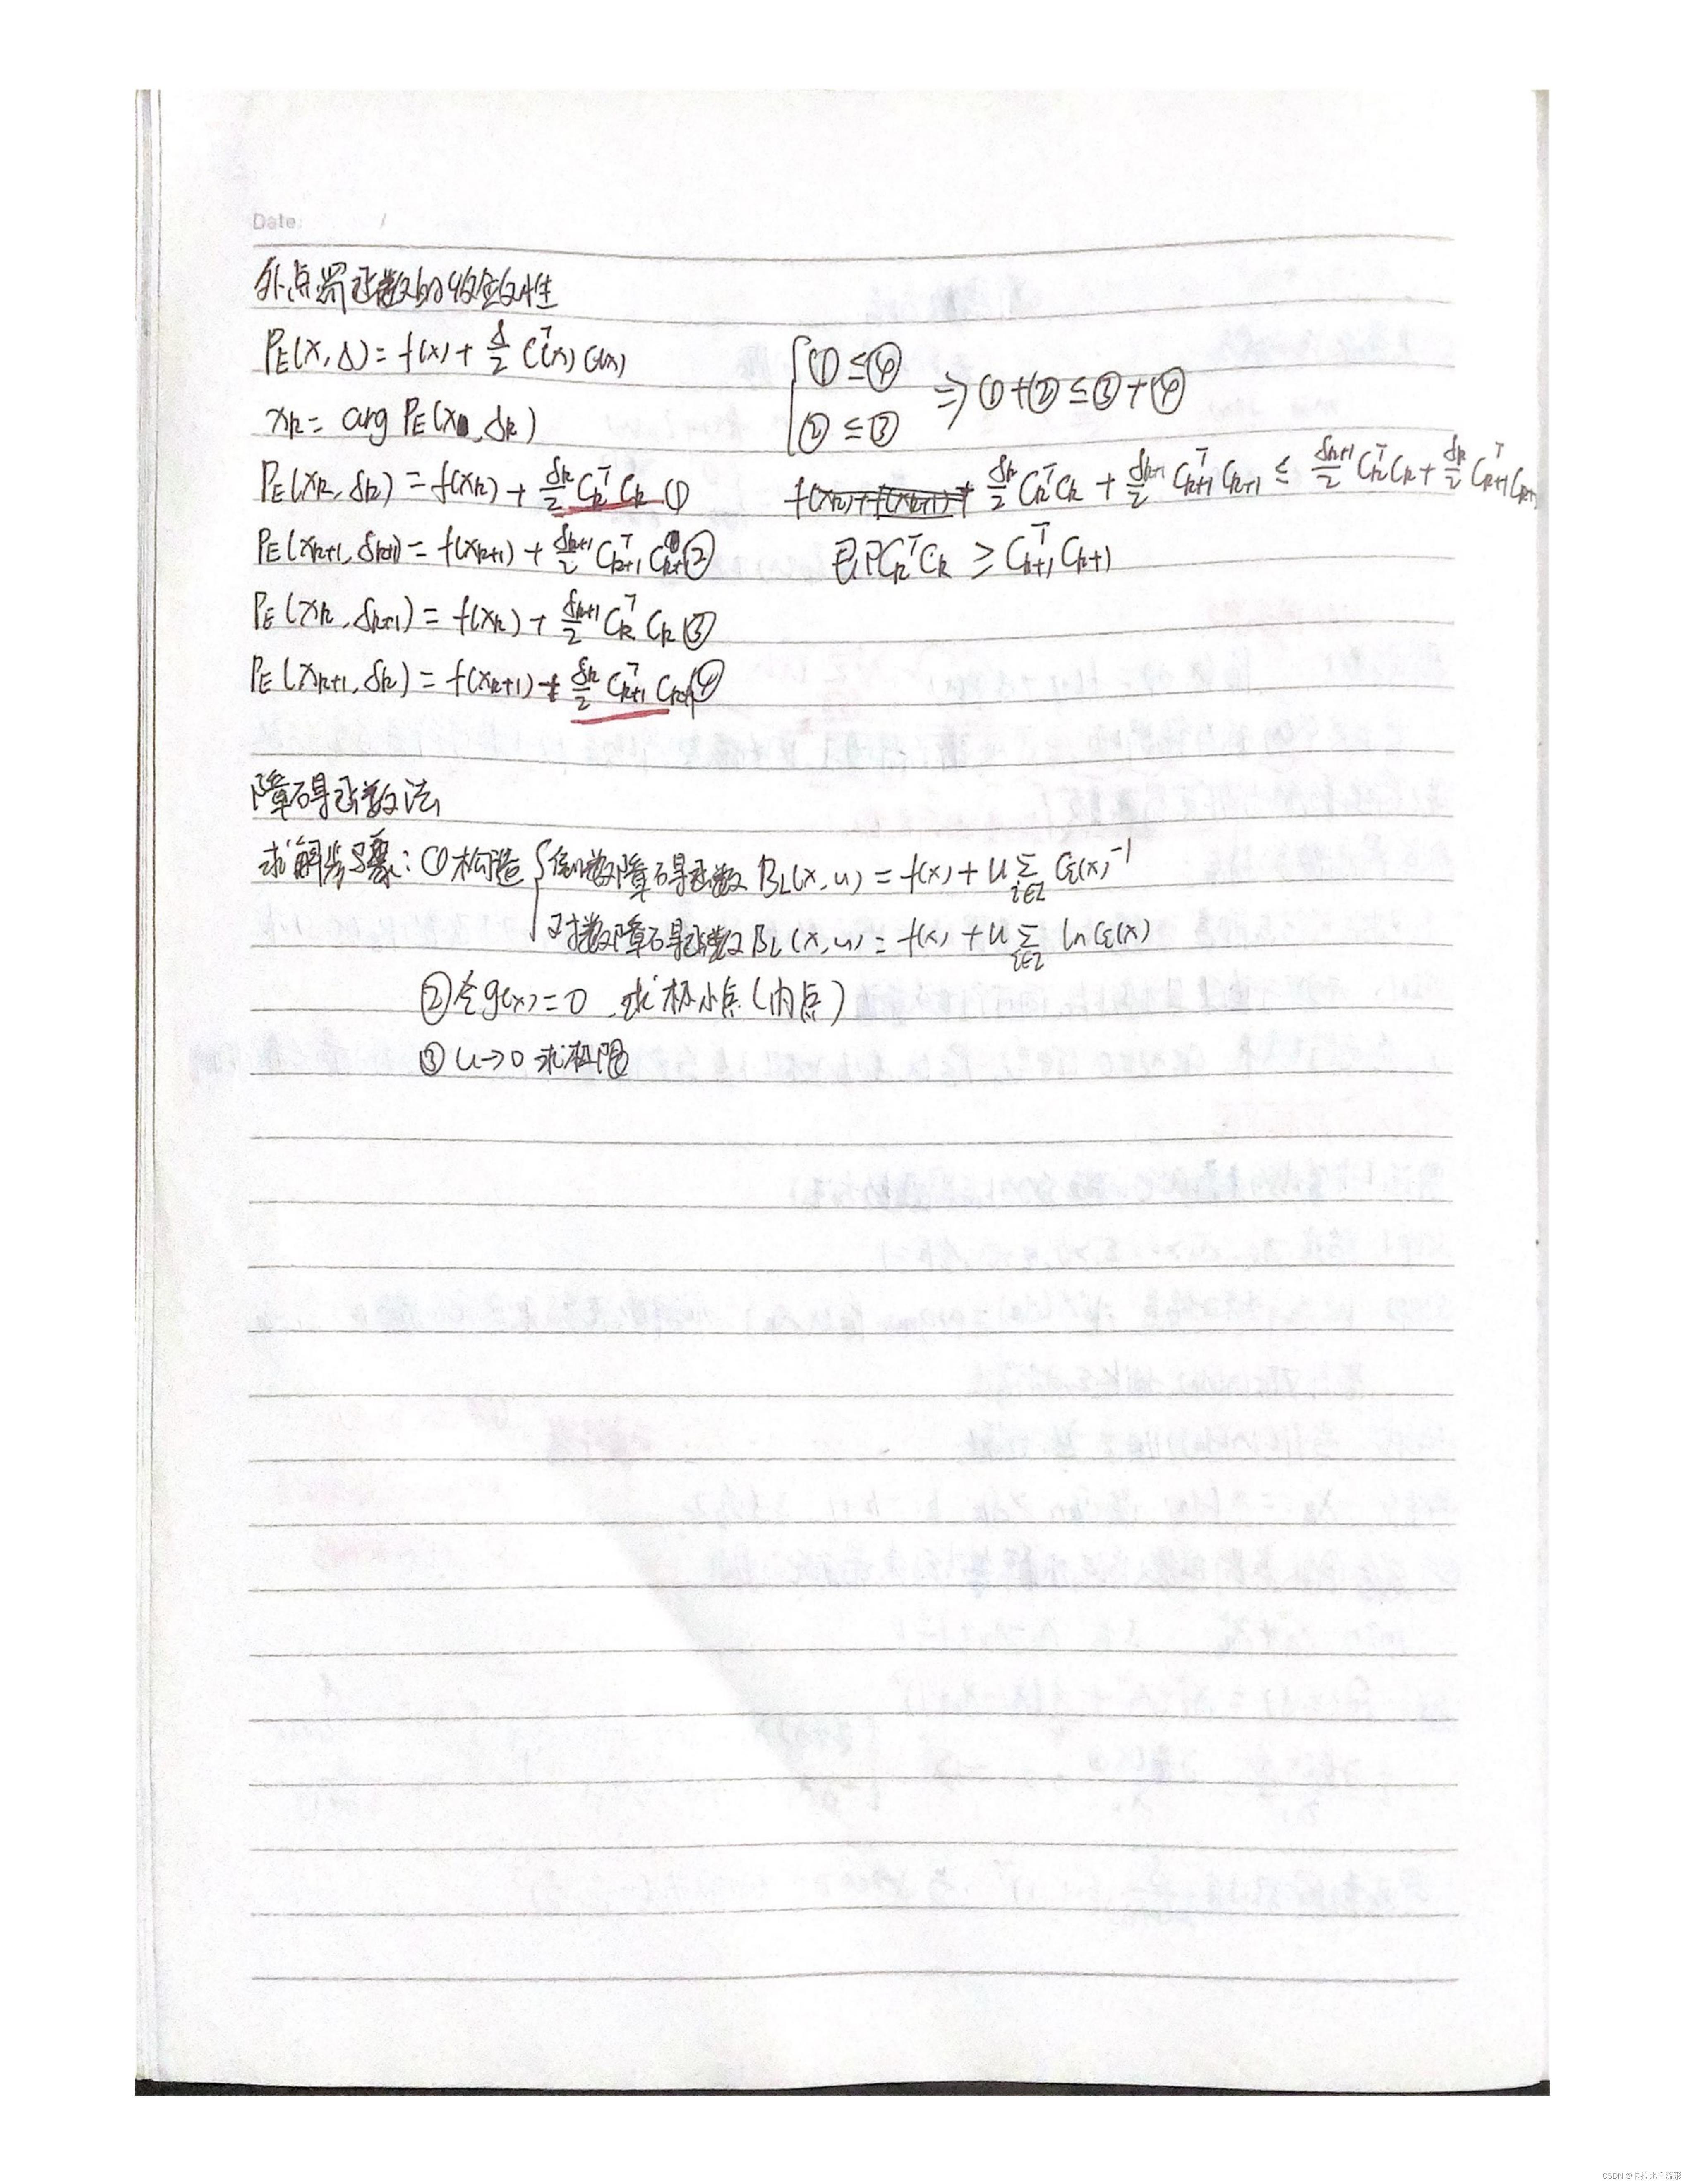 Date: /
外点罚函数的收敛性
P_E(x, δ) = f(x) + δ/2 C^T(x) C(x)
x_k = arg P_E(x, δ_k)
P_E(x_k, δ_k) = f(x_k) + δ_k/2 C_k^T C_k ①
P_E(x_{k+1}, δ_{k+1}) = f(x_{k+1}) + δ_{k+1}/2 C_{k+1}^T C_{k+1} ②
P_E(x_k, δ_{k+1}) = f(x_k) + δ_{k+1}/2 C_k^T C_k ③
P_E(x_{k+1}, δ_k) = f(x_{k+1}) + δ_k/2 C_{k+1}^T C_{k+1} ④
{ ① ≤ ④
② ≤ ③ ⇒ ① + ② ≤ ③ + ④
δ_k/2 C_k^T C_k + δ_{k+1}/2 C_{k+1}^T C_{k+1} ≤ δ_{k+1}/2 C_k^T C_k + δ_k/2 C_{k+1}^T C_{k+1}
即 C_k^T C_k ≥ C_{k+1}^T C_{k+1}
障碍函数法
求解步骤: ①构造 { 倒数障碍函数 B_L(x, u) = f(x) + u Σ_{i∈I} C_i(x)^{-1}
对数障碍函数 B_L(x, u) = f(x) + u Σ_{i∈I} ln C_i(x)
②令 g(x) = 0 求极小点 (内点)
③ u→0 求极限
CSDN @卡拉比丘流形